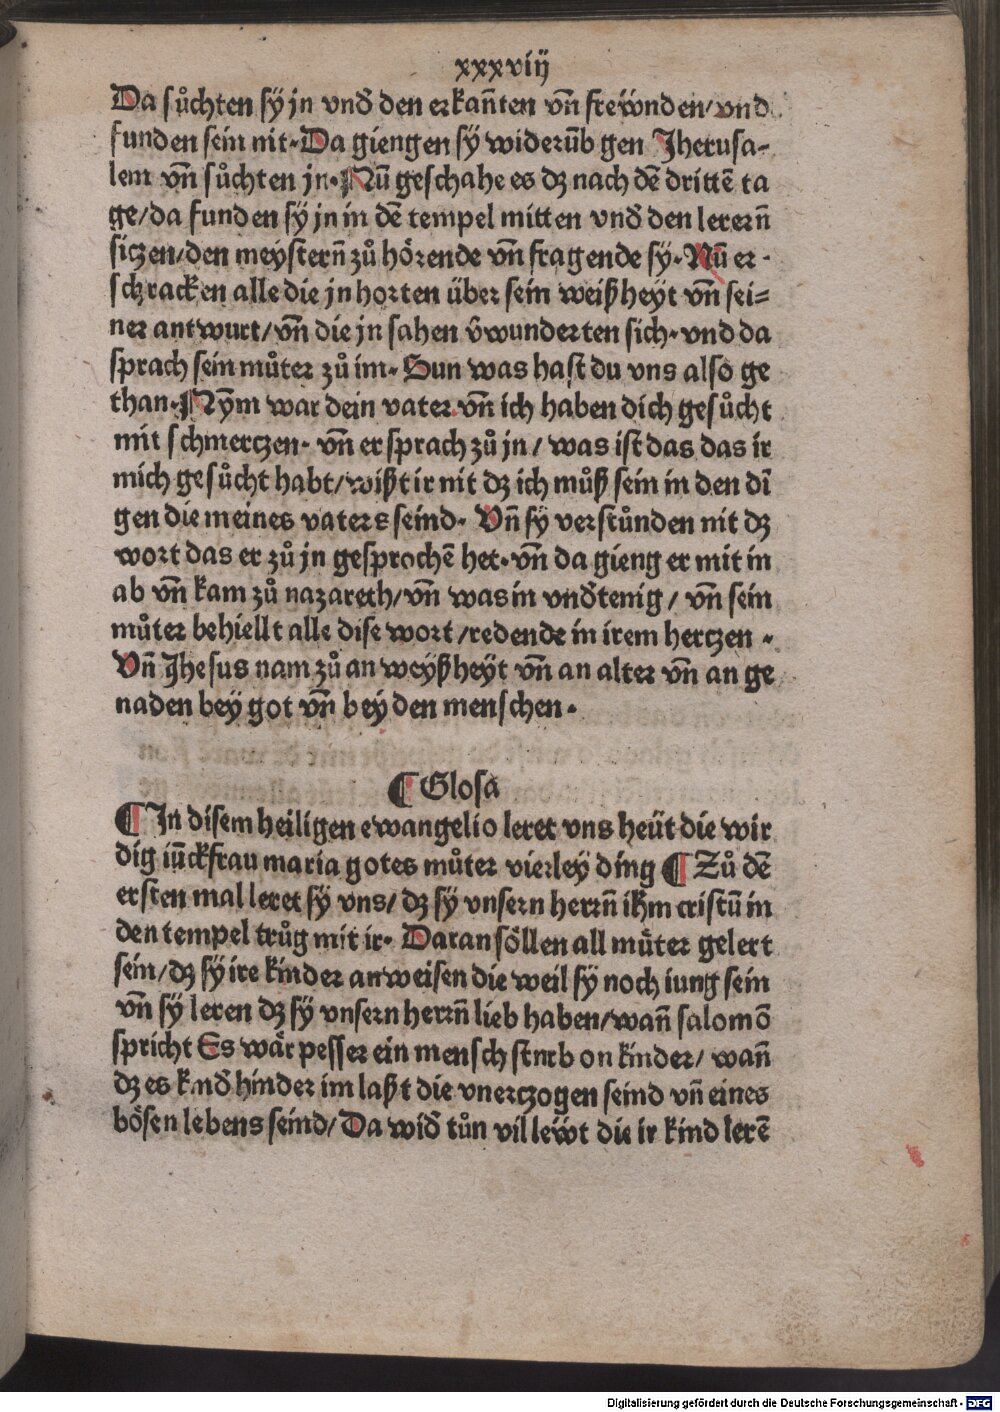 xxxviij
Da sůchten sÿ jn vnď den erkañten vñ freẅnden/vnd
funden sein nit. Da giengen sÿ widerūb gen Jherusa-
lem vñ sůchten jn. Nū geschahe es dz nach dē drittē ta
ge/da funden sÿ jn in dē tempel mitten vnď den lererñ
siczen/den meysterñ zů hörende vñ fragende sÿ. Nū er-
schracken alle die jn horten über sein weißheÿt vñ sei=
ner antwurt/vñ die jn sahen v̄wunderten sich. vnd da
sprach sein můter zů im. Sun was hast du vns also ge
than. Nȳm war dein vater vñ ich haben dich gesůcht
mit schmerczen. vñ er sprach zů jn/ was ist das das ir
mich gesůcht habt/wißt ir nit dz ich můß sein in den dī
gen die meines vaters seind. Vñ sÿ verstůnden nit dz
wort das er zů jn gesprochē het. vñ da gieng er mit in
ab vñ kam zů nazareth/vñ was in vnďtenig/ vñ sein
můter behiellt alle dise wort/redende in irem herczen.
Vñ Jhesus nam zů an weÿßheÿt vñ an alter vñ an ge
naden beÿ got vñ beÿ den menschen.
¶ Glosa
¶ In disem heiligen ewangelio leret vns heüt die wir
dig iūckfrau maria gotes můter vierleÿ ding ¶ Zů dē
ersten mal leret sÿ vns/ dz sÿ vnsern herrñ ihm̄ cristū in
den tempel trůg mit ir. Daran söllen all müter gelert
sein/dz sÿ ire kinder anweisen die weil sÿ noch iung sein
vñ sÿ leren dz sÿ vnsern herrñ lieb haben/wañ salomō
spricht Es wär pesser ein mensch sturb on kinder/ wañ
dz es kinď hinder im laßt die vnerczogen seind vñ eines
bösen lebens seind/ Da wiď tůn vil leẅt die ir kind lerē
Digitalisierung gefördert durch die Deutsche Forschungsgemeinschaft - DFG